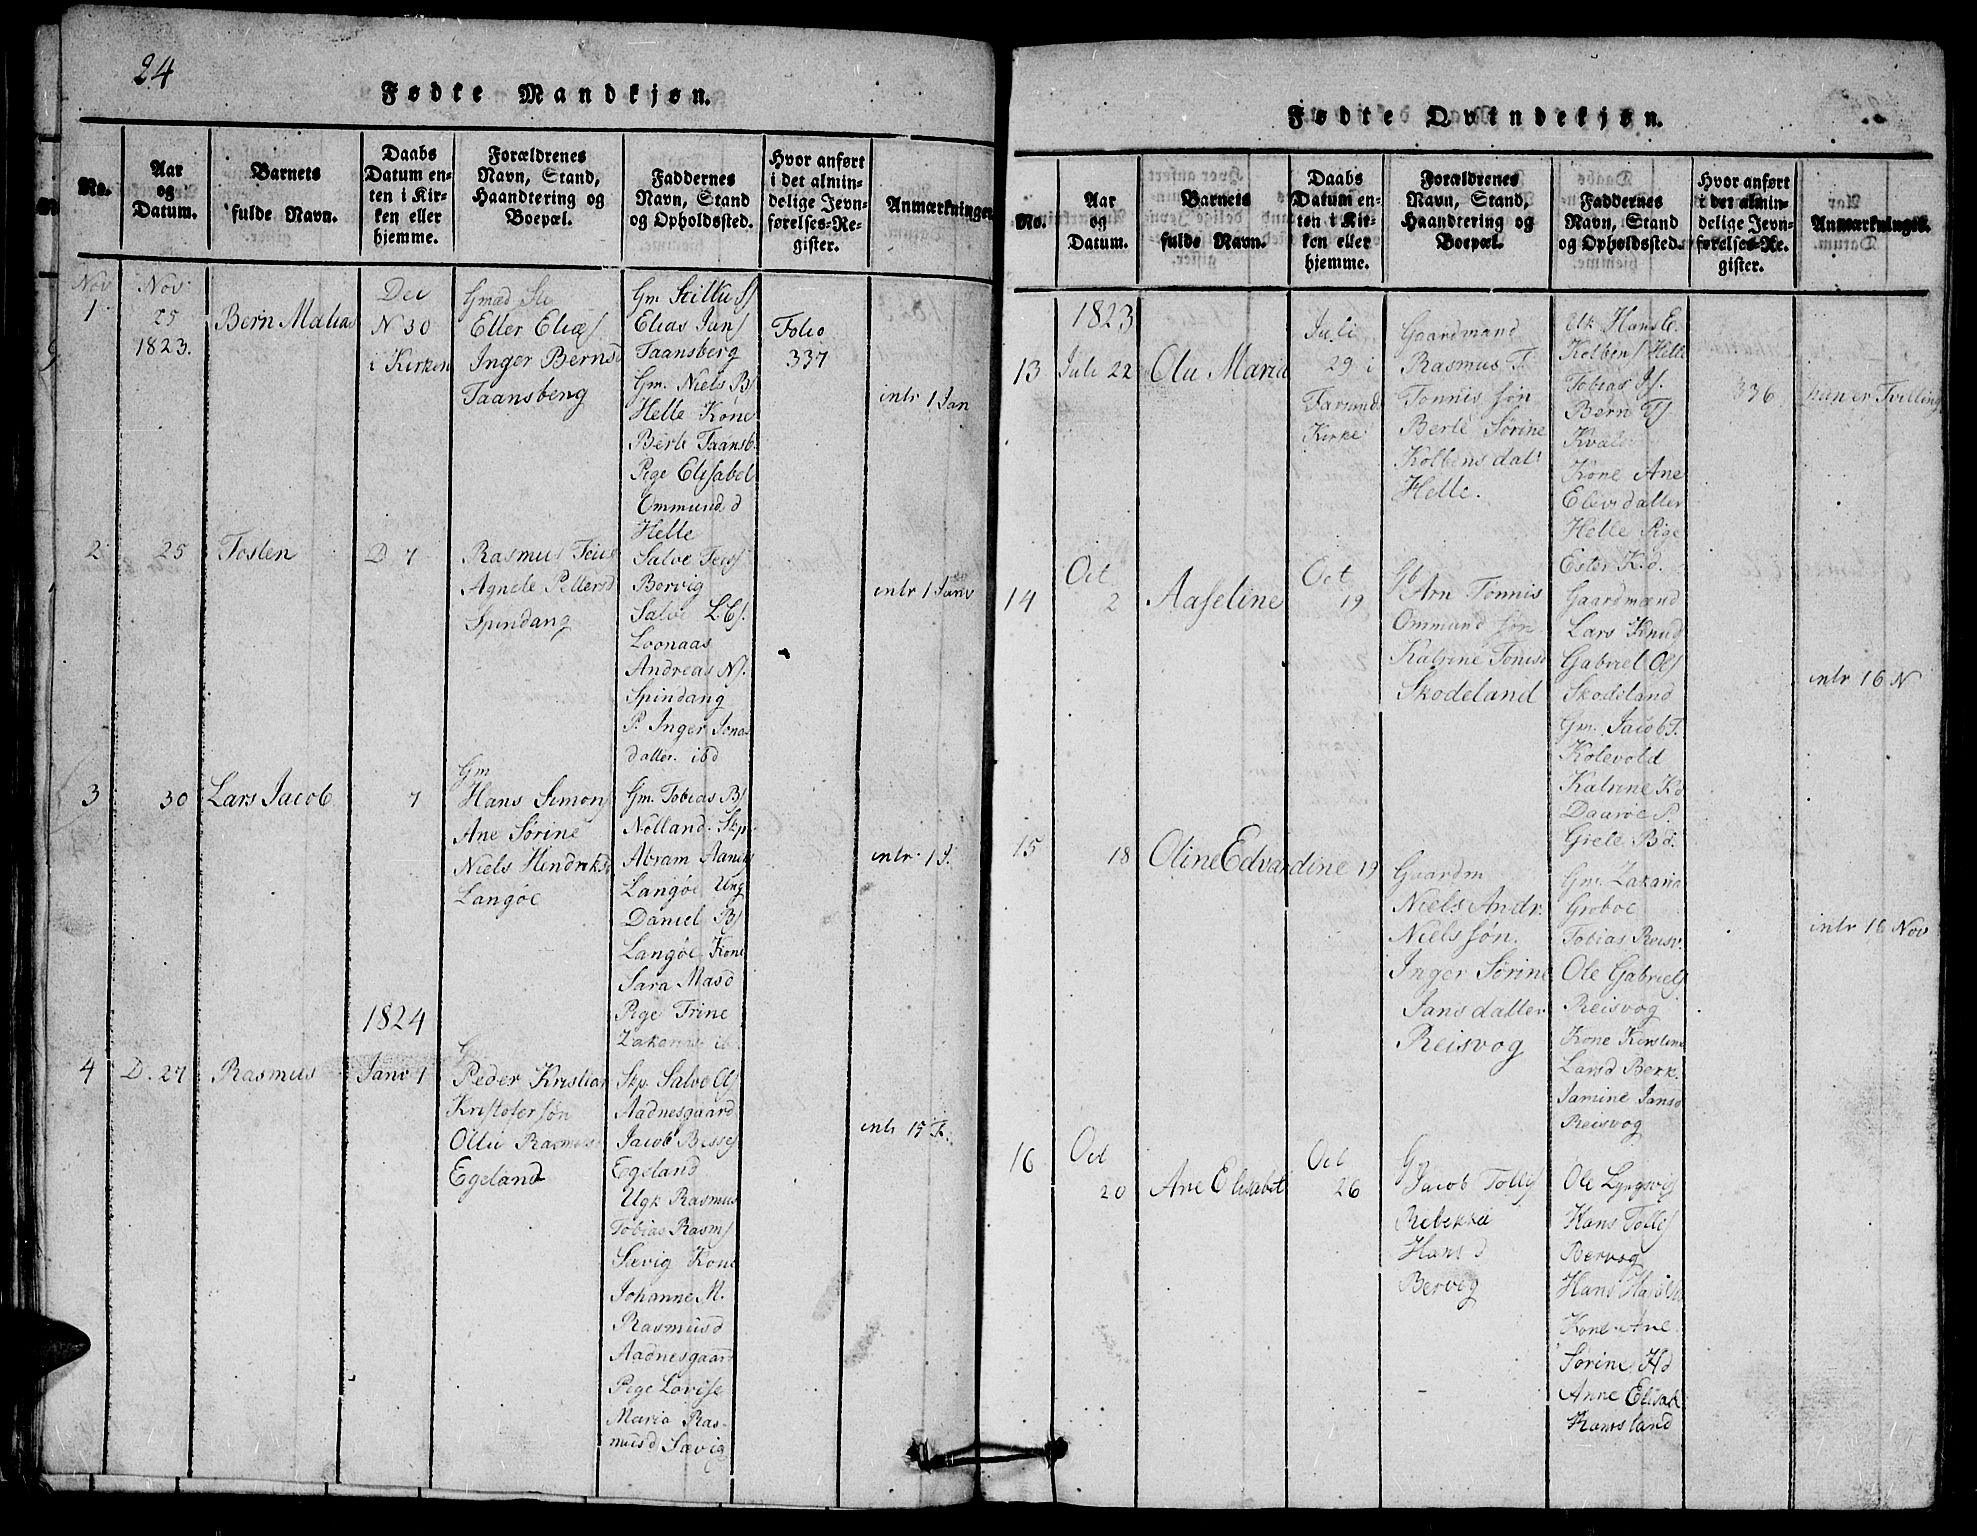 24
Fødte Mandkjøn.
No.
Aar
og
Datum.
Barnets
fulde Navn.
Daabs
Datum en-
ten i Kir-
ken eller
hjemme.
Forældrenes
Navn, Stand,
Haandtering og
Boepæl.
Faddernes
Navn, Stand
og Opholdssted.
Hvor anført
i det almin-
delige Jevn-
førelses-Re-
gister.
Anmærkninger
Nov
1
Nov
25
1823.
Bern Matias
Dec
N 30
i Kirken
Eller Elias
Inger Bernsd
Taansberg
Elias Jans
Taansberg
Gm. Niels Bs
Helle Kone
Berte Taansb.
Pige Elisabet
Ommund d
Helle
Folio
337
intr 1 Jan
2
25
Tosten
D 7
Rasmus
Agnete Pettersd
Spindang
Salve
Borvig
Salve
Loonaas
Andreas Ns.
Spindang
P. Inger Jonas
datter. ibd
intr 1 Janv
3
30
Lars Jacob
7
Gm
Hans Simons
Ane Sørine
Niels Hendriksd
Langøe
Gm. Tobias Bs
Nolland. Skp.
Abram Aanens
Langøe Ung
Daniel Bs
Langøe. Kone
Sara Masd
Pige Trine
Zakarias
intr. 1 J.
1824
4
D. 27
Rasmus
Janv 1
G
Peder Kristian
Kristofersøn
Rasmus
Egeland
Skp. Salve Os
Aadnesgaard
Jacob
Egeland
Ugk Rasmus
Tobias Rasms
Sævig Kone
Johanne M.
Rasmusd
Aadnesgaard
Pige Lovise
Maria Ras-
musd Sævig
intr 15 F.
Fødte Qvindekjøn.
No.
Aar
og
Datum.
Barnets
fulde Navn.
Daabs
Datum en-
ten i Kir-
ken eller
hjemme.
Forældrenes
Navn, Stand,
Haandtering og
Boepæl.
Faddernes
Navn, Stand
og Opholdssted.
Hvor anført
i det almin-
delige Jevn-
førelses-Re-
gister.
Anmærkninger.
1823
13
Juli 22
Maria
Juli
29 i
Farsund
Kirke
Gaardmand
Rasmus T.
Tonnis søn
Berte Sørine
Kolbens dat
Helle.
Hans E.
Kolbens Helle
Tobias Js.
Bern Ts
Kvale
Kone Ane
Elevsdatter
Helle Pige
Ester K.d.
336
Tvilling
14
Oct
2
Aaseline
Oct
19
Arn Tonnis
Ommund søn
Katrine Tonisd
Skodeland
Gaardmænd
Lars Knuds
Gabriel Ols
Skodeland
Gm. Jacob T.
Kolevold
Katrine Kd
Daarøe P.
Giele Bd.
intr 16 N
15
18
Oline Edvardine
19
Gaardm
Niels Andr.
Nielssøn.
Inger Sørine
Jansdatter
Reisvog
Gm. Zakaria
Groboe
Tobias Reisv.
Ole Gabriels
Reisvog
Kone Kirstine
Larsd Berk.
Jamine Jansd
Reisvog
intr 16 Nov
16
Oct
20
Ane Elisabet
Oct
26
G
Jacob Tolls
Rebekka
Hans d
Bervig
Ole Lyngsvs
Hans Tolls
Bervog
Hans
Kone Ane
Sørine Hd
Anne Elisab